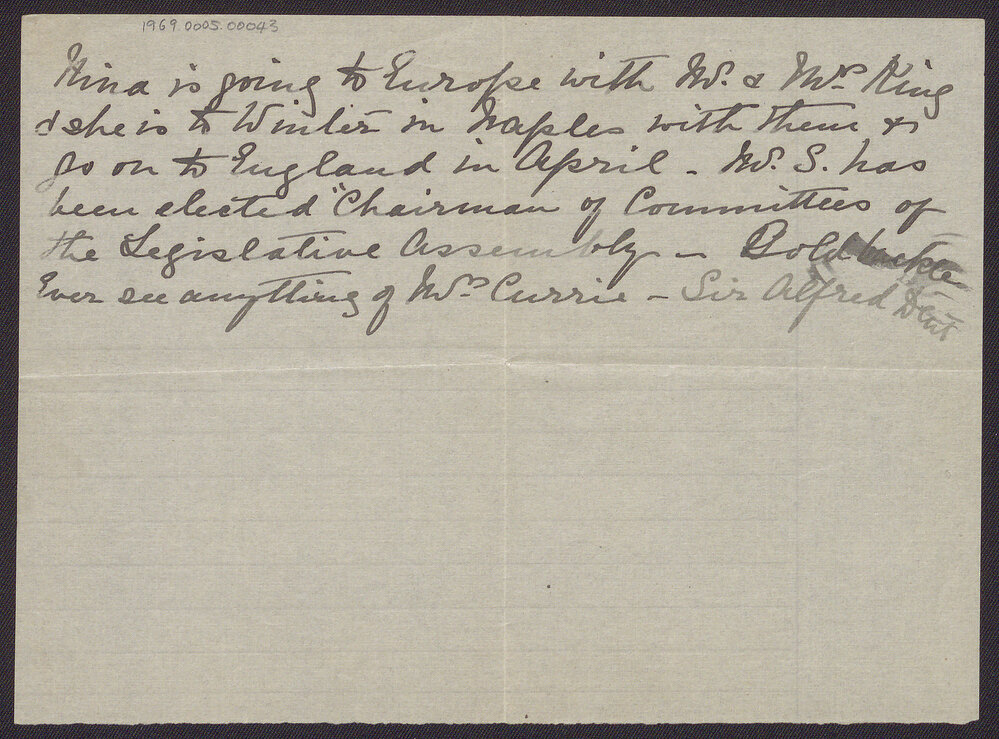 1969.0005.00043
Nina is going to Europe with Mr. & Mrs. King
& she is to Winter in Naples with them &
go on to England in April - Mr. S. has
been elected "Chairman of Committees of
the Legislative Assembly - Gold buckle
Ever see anything of Mrs. Currie - Sir Alfred Dent